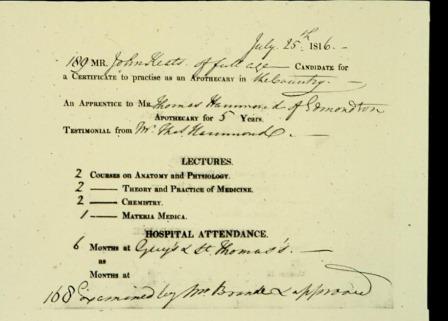 July 25th 1816.
189 MR. John Keats of full age CANDIDATE for
a CERTIFICATE to practise as an APOTHECARY in the Country.
An APPRENTICE to MR. Thomas Hammond of Edmonton
APOTHECARY for 5 YEARS.
TESTIMONIAL from Mr. Thos Hammond
LECTURES.
2 COURSES on ANATOMY and PHYSIOLOGY.
2 —— THEORY and PRACTICE of MEDICINE.
2 —— CHEMISTRY.
1 —— MATERIA MEDICA.
HOSPITAL ATTENDANCE.
6 MONTHS at Guy's & St. Thomas's.
as
MONTHS at
168 Examined by Mr. Brande & approved